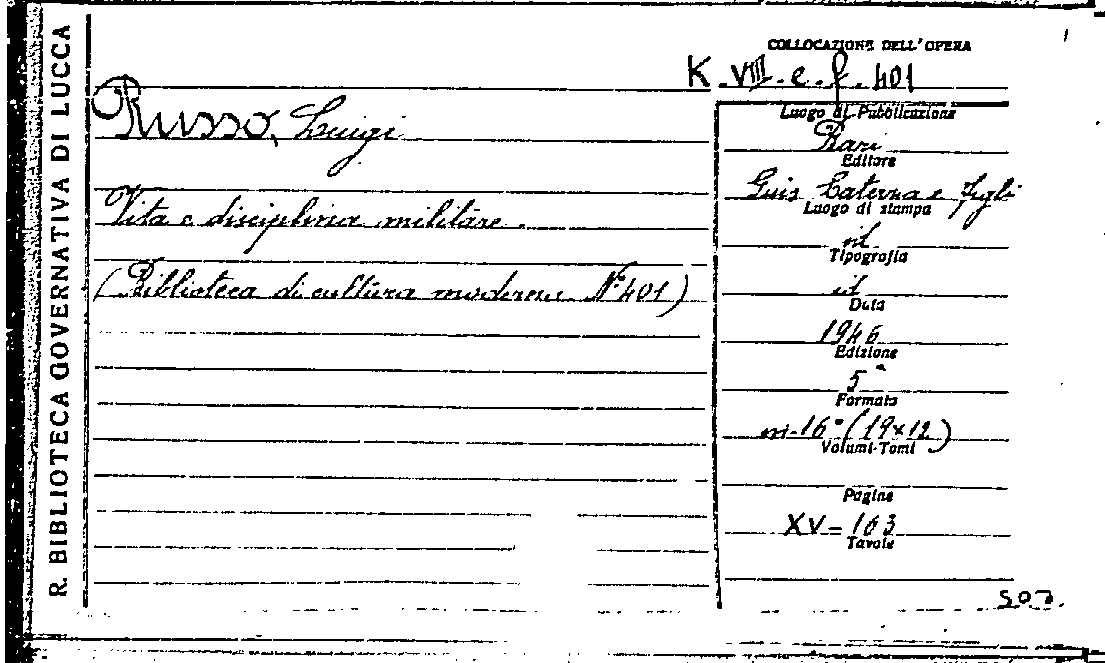 R. BIBLIOTECA GOVERNATIVA DI LUCCA
COLLOCAZIONE DELL'OPERA
K. VIII. e. f. 401
Russo, Luigi
Vita e disciplina militare.
(Biblioteca di cultura moderna N° 401)
Luogo di Pubblicazione
Bari
Editore
Gius Laterza e figli
Luogo di stampa
id
Tipografia
id
Data
1946
Edizione
5ª
Formato
in-16° (19×12)
Volumi-Tomi
Pagine
XV-163
Tavole